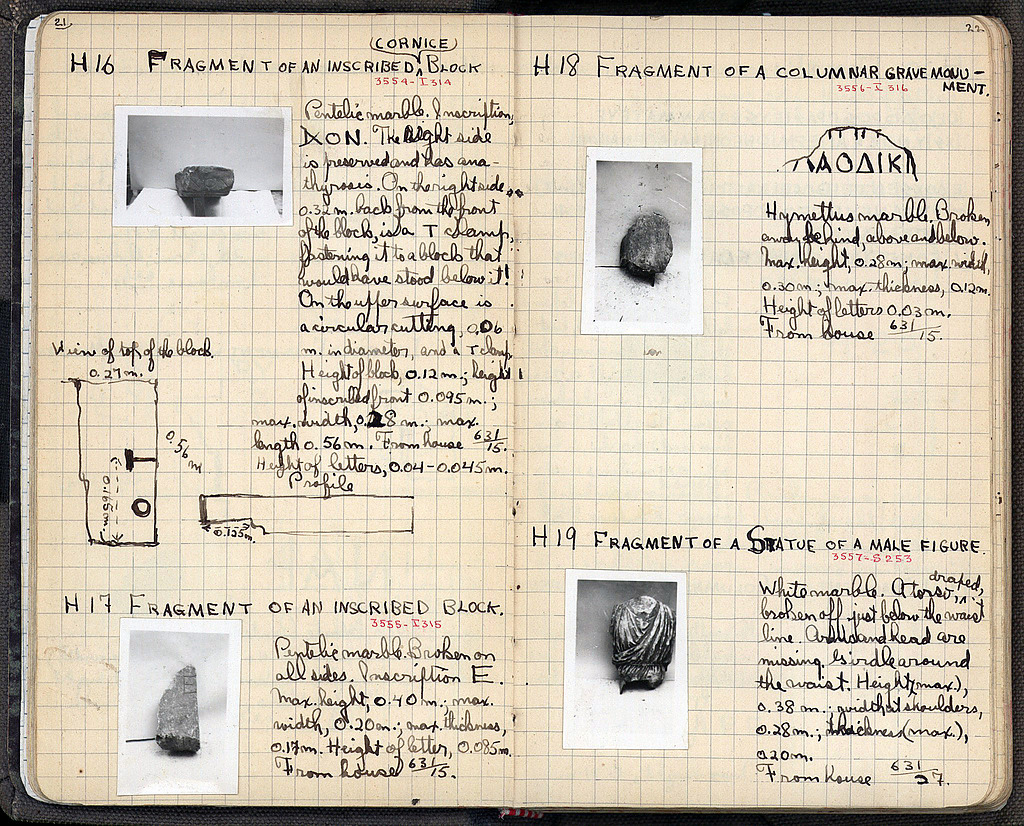 21
(CORNICE)
H 16 FRAGMENT OF AN INSCRIBED BLOCK
3554-I 314
Pentelic marble. Inscription,
ΙΧΟΝ. The right side
is preserved and has ana-
thyrosis. On the right side,
0.32 m. back from the front
of the block, is a T clamp,
fastening it to a block that
would have stood below it!
On the upper surface is
a circular cutting, 0.06
m. in diameter, and a T clamp.
Height of block, 0.12 m.; height
of inscribed front 0.095 m.;
max. width, 0.28 m.; max.
length 0.56 m. From house 631/15.
Height of letters, 0.04-0.045 m.
View of top of the block.
0.27 m.
0.56 m
0.165 m.
Profile
0.155 m.
H 17 FRAGMENT OF AN INSCRIBED BLOCK.
3555-I 315
Pentelic marble. Broken on
all sides. Inscription E.
Max. height, 0.40 m.; max.
width, 0.20 m.; max. thickness,
0.17 m. Height of letter, 0.085 m.
From house 631/15.
22
H 18 FRAGMENT OF A COLUMNAR GRAVE MONU-
MENT.
3556-I 316
ΛΑΟΔΙΚ
Hymettus marble. Broken
away behind, above and below.
Max. height, 0.28 m; max. width,
0.30 m.; max. thickness, 0.12 m.
Height of letters 0.03 m.
From house 631/15.
H 19 FRAGMENT OF A STATUE OF A MALE FIGURE.
3557-S 253
draped,
White marble. A torso,
broken off just below the waist
line. Arms and head are
missing. Girdle around
the waist. Height (max.),
0.38 m.; width at shoulders,
0.28 m.; thickness (max.),
0.20 m.
From house 631/27.